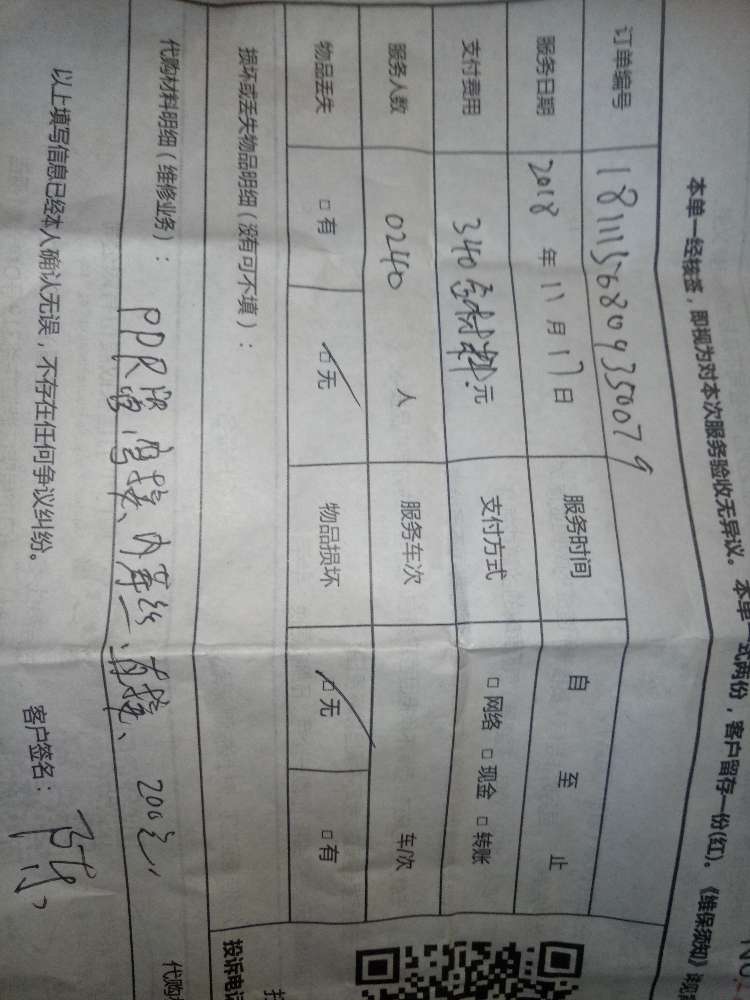 本单一经接签，即视为对本次服务验收无异议。本单一式两份，客户留存一份(红)。《维保须知》
订单编号 1811156809350079
服务日期 2018 年 11 月 17 日 服务时间 自 至 止
支付费用 340 含材料. 元 支付方式 □ 网络 □ 现金 □ 转账
服务人数 0240 人 服务车次 车/次
物品丢失 □ 有 □ 无 物品损坏 □ 无 □ 有
损坏或丢失物品明细（没有可不填）：
投诉电
代购材料明细（维修业务）： PPR 弯接、内 直接、 200元
代购
以上填写信息已经本人确认无误，不存在任何争议纠纷。 客户签名：